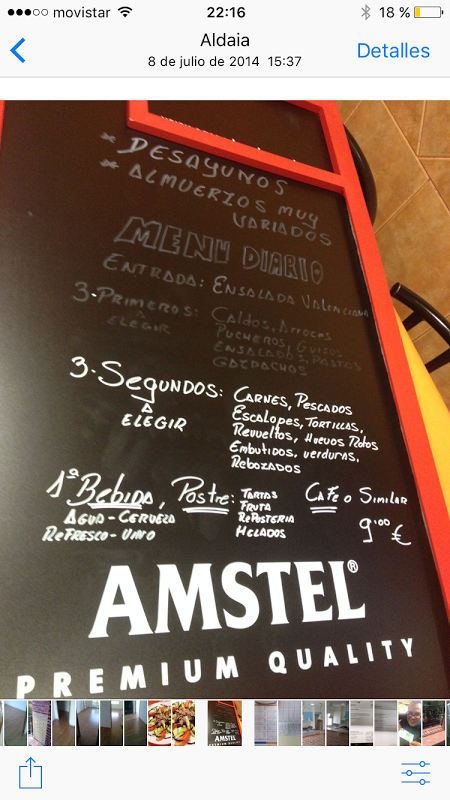 movistar 22:16 18 %
Aldaia
8 de julio de 2014 15:37
Detalles
* DESAYUNOS
* ALMUERZOS MUY
VARIADOS
MENU DIARIO
ENTRADA: ENSALADA VALENCIANA
3-PRIMEROS: CALDOS, ARROCES
A ELEGIR PUCHEROS, GUISOS
ENSALADOS, PASTAS
GAZPACHOS
3-SEGUNDOS: CARNES, PESCADOS
A ELEGIR ESCALOPES, TORTILLAS,
REVUELTOS, HUEVOS ROTOS
EMBUTIDOS, VERDURAS,
REBOZADOS
1ª BEBIDA, POSTRE: TARTAS CAFE o SIMILAR
AGUA-CERVEZA FRUTA
REFRESCO-VINO REPOSTERIA
HELADOS
9'00 €
AMSTEL®
PREMIUM QUALITY
AMSTEL
PREMIUM QUALITY